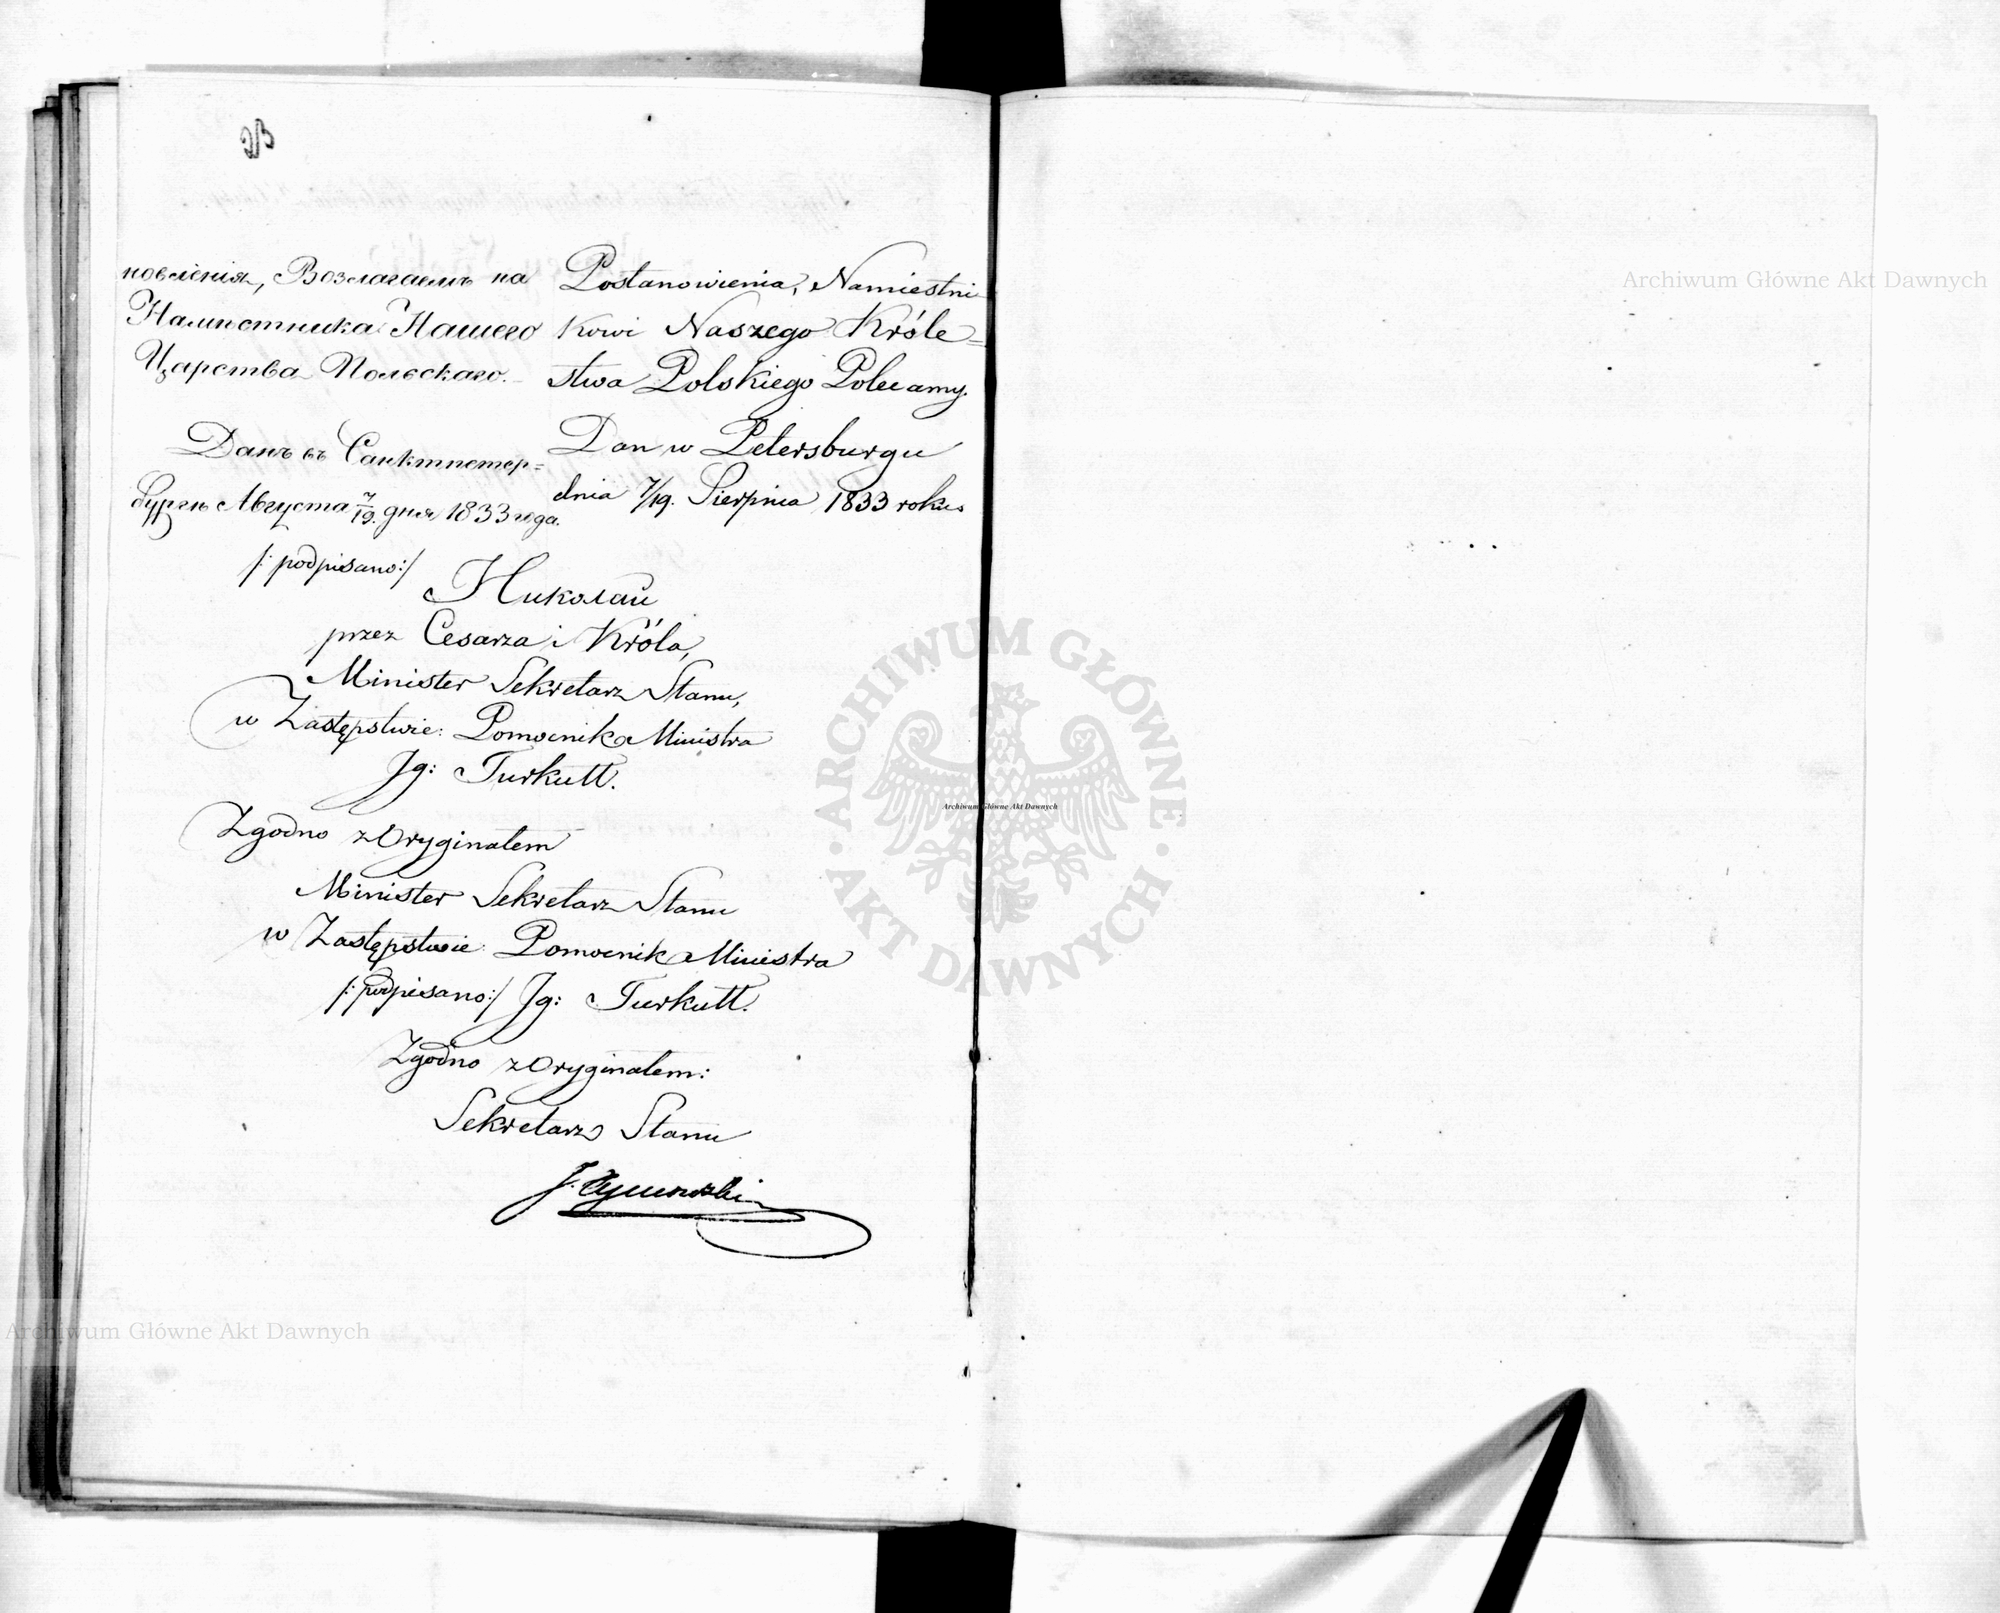 новленія, Возлагаемъ на
Намѣстника Нашего
Царства Польскаго.
Данъ въ Санктпетер=
бургѣ Августа 7/19. дня 1833 года.
Postanowienia, Namiestni
kowi Naszego Króle=
stwa Polskiego Polecamy.
Dan w Petersburgu
dnia 7/19. Sierpnia 1833 roku.
/: podpisano:/ Николай
przez Cesarza i Króla,
Minister Sekretarz Stanu,
w Zastępstwie: Pomocnik Ministra
Jg: Turkułł.
Zgodno z Oryginałem
Minister Sekretarz Stanu
w Zastępstwie: Pomocnik Ministra
/: podpisano:/ Jg: Turkułł.
Zgodno z Oryginałem:
Sekretarz Stanu
J. Tymowski
Archiwum Główne Akt Dawnych
ARCHIWUM GŁÓWNE
AKT DAWNYCH
Archiwum Główne Akt Dawnych
Archiwum Główne Akt Dawnych